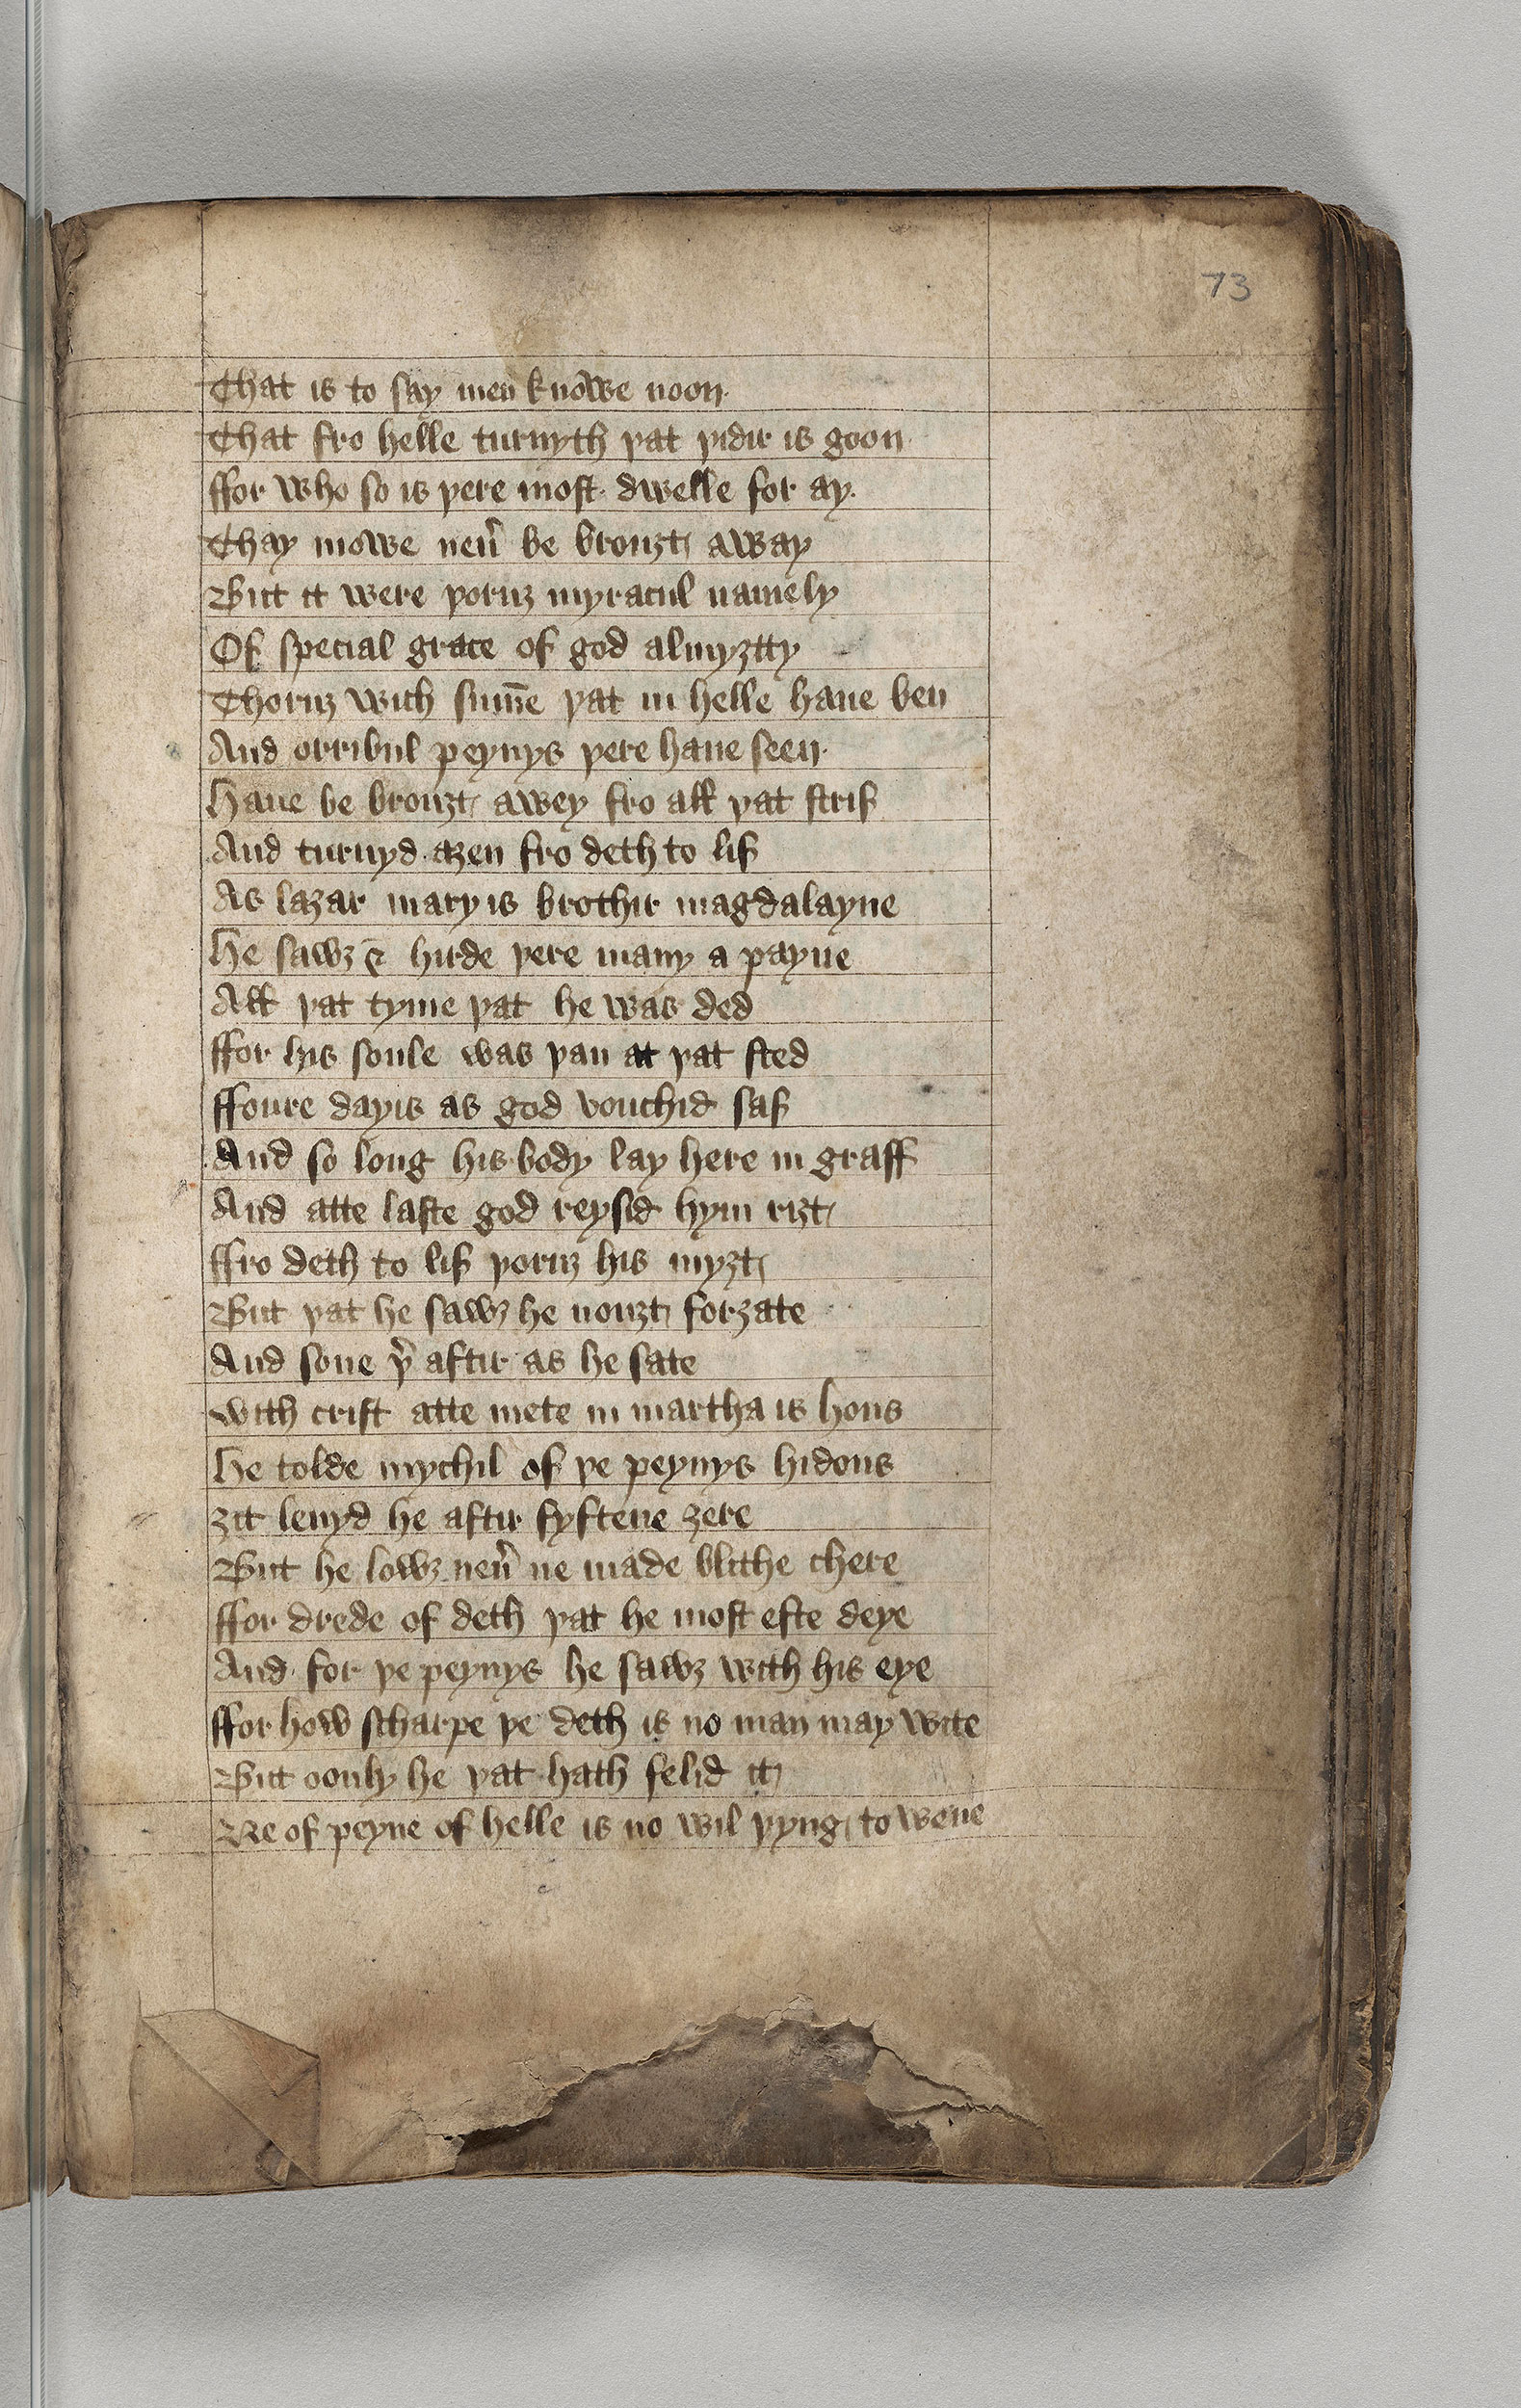 73
That is to say men knowe noon
That fro helle turnyth þat þidir is goon
ffor who so is þere most dwelle for ay
Thay mowe neủ be brouȝt away
But it were þoruȝ myracul namely
Of special grace of god almyȝtty
Thoruȝ wich sum̄e þat in helle haue ben
And orribul peynys þere haue seen
Haue be brouȝt awey fro all þat strif
And turnyd aȝen fro deth to lif
As lazar mary is brothir magdalayne
He sawȝ & hirde þere many a payne
All þat tyme þat he was ded
ffor his soule was þan at þat sted
ffoure dayis as god vouchid saf
And so long his body lay here in graff
And atte laste god reysid hym riȝt
ffro deth to lif þoruȝ his myȝt
But þat he sawȝ he nouȝt forȝate
And sone þ̉ aftir as he sate
with crist atte mete in martha is hous
He tolde mychil of þe peynys hidous
ȝit leuyd he aftir fyftene ȝere
But he lowȝ neủ ne made blithe chere
ffor drede of deth þat he most efte deye
And for þe peynys he sawȝ with his eye
ffor how scharpe þe deth is no man may wite
But oonly he þat hath felid it
Ne of peyne of helle is no wil þyng to wene